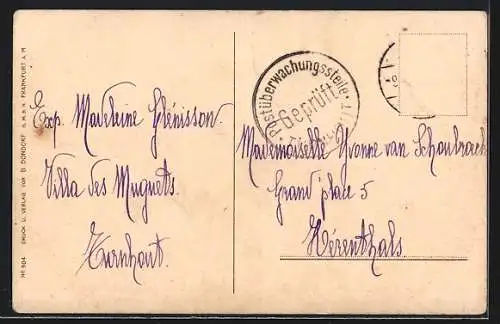 Nº 504 DRUCK U. VERLAG VON B. DONDORF G. M. B. H. FRANKFURT A. M
Exp. Madeleine Glénisson.
Villa des Muguets.
Turnhout.
Postüberwachungsstelle
Geprüft
Mademoiselle Yvonne van Schoubroeck
Grand'place 5
Hérenthals